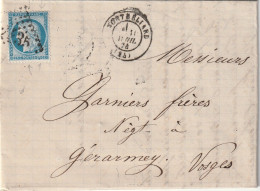 MONTBÉLIARD
Messieurs
Darniers frères
Négt à
Gérarmey
Vosges